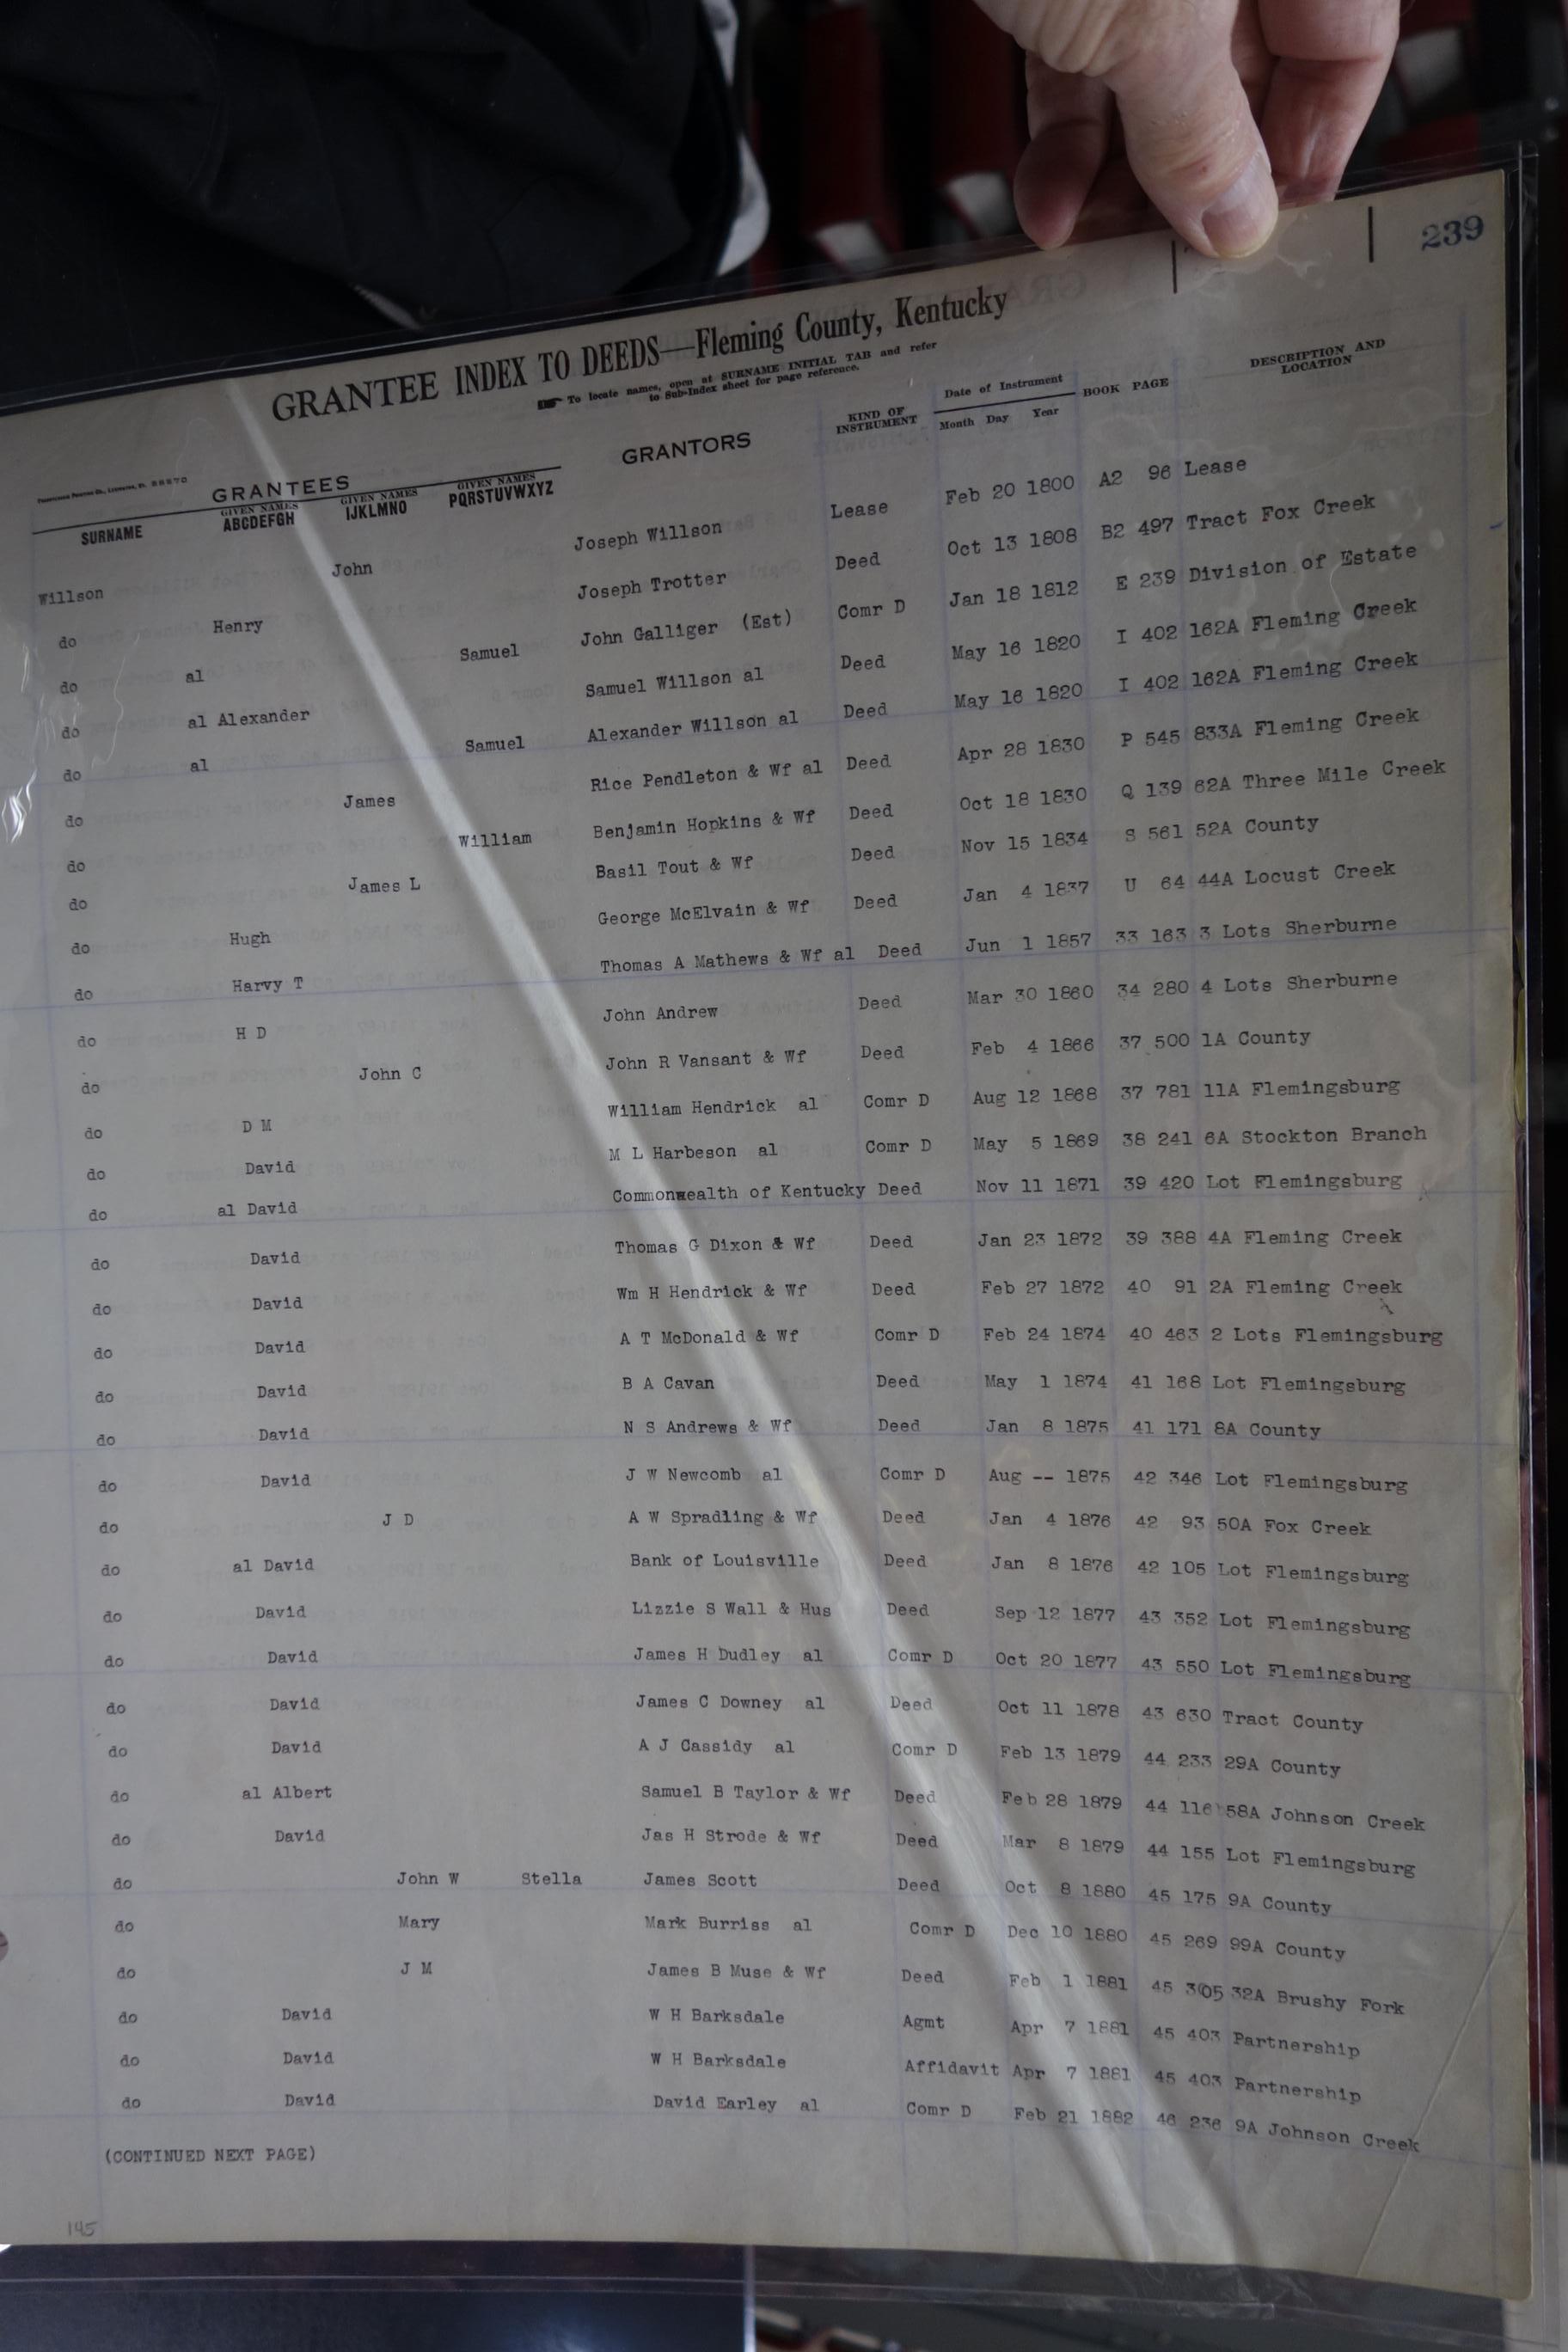 239
GRANTEE INDEX TO DEEDS—Fleming County, Kentucky
To locate names, open at SURNAME INITIAL TAB and refer
to Sub-Index sheet for page reference.
GRANTEES GRANTORS KIND OF INSTRUMENT Date of Instrument BOOK PAGE DESCRIPTION AND LOCATION
SURNAME GIVEN NAMES ABCDEFGH GIVEN NAMES IJKLMNO GIVEN NAMES PQRSTUVWXYZ Month Day Year
Willson John Joseph Willson Lease Feb 20 1800 A2 96 Lease
do Henry Joseph Trotter Deed Oct 13 1808 B2 497 Tract Fox Creek
do al Samuel John Galliger (Est) Comr D Jan 18 1812 E 239 Division of Estate
do al Alexander Samuel Willson al Deed May 16 1820 I 402 162A Fleming Creek
do al Samuel Alexander Willson al Deed May 16 1820 I 402 162A Fleming Creek
do James Rice Pendleton & Wf al Deed Apr 28 1830 P 545 833A Fleming Creek
do William Benjamin Hopkins & Wf Deed Oct 18 1830 Q 139 62A Three Mile Creek
do James L Basil Tout & Wf Deed Nov 15 1834 S 561 52A County
do Hugh George McElvain & Wf Deed Jan 4 1837 U 64 44A Locust Creek
do Harvy T Thomas A Mathews & Wf al Deed Jun 1 1857 33 163 3 Lots Sherburne
do H D John Andrew Deed Mar 30 1860 34 280 4 Lots Sherburne
do John C John R Vansant & Wf Deed Feb 4 1866 37 500 1A County
do D M William Hendrick al Comr D Aug 12 1868 37 781 11A Flemingsburg
do David M L Harbeson al Comr D May 5 1869 38 241 6A Stockton Branch
do al David Commonwealth of Kentucky Deed Nov 11 1871 39 420 Lot Flemingsburg
do David Thomas G Dixon & Wf Deed Jan 23 1872 39 388 4A Fleming Creek
do David Wm H Hendrick & Wf Deed Feb 27 1872 40 91 2A Fleming Creek
do David A T McDonald & Wf Comr D Feb 24 1874 40 463 2 Lots Flemingsburg
do David B A Cavan Deed May 1 1874 41 168 Lot Flemingsburg
do David N S Andrews & Wf Deed Jan 8 1875 41 171 8A County
do David J W Newcomb al Comr D Aug -- 1875 42 346 Lot Flemingsburg
do J D A W Spradling & Wf Deed Jan 4 1876 42 93 50A Fox Creek
do al David Bank of Louisville Deed Jan 8 1876 42 105 Lot Flemingsburg
do David Lizzie S Wall & Hus Deed Sep 12 1877 43 352 Lot Flemingsburg
do David James H Dudley al Comr D Oct 20 1877 43 550 Lot Flemingsburg
do David James C Downey al Deed Oct 11 1878 43 630 Tract County
do David A J Cassidy al Comr D Feb 13 1879 44 233 29A County
do al Albert Samuel B Taylor & Wf Deed Feb 28 1879 44 116 58A Johnson Creek
do David Jas H Strode & Wf Deed Mar 8 1879 44 155 Lot Flemingsburg
do John W Stella James Scott Deed Oct 8 1880 45 175 9A County
do Mary Mark Burriss al Comr D Dec 10 1880 45 269 99A County
do J M James B Muse & Wf Deed Feb 1 1881 45 305 32A Brushy Fork
do David W H Barksdale Agmt Apr 7 1881 45 403 Partnership
do David W H Barksdale Affidavit Apr 7 1881 45 403 Partnership
do David David Earley al Comr D Feb 21 1882 46 236 9A Johnson Creek
(CONTINUED NEXT PAGE)
145